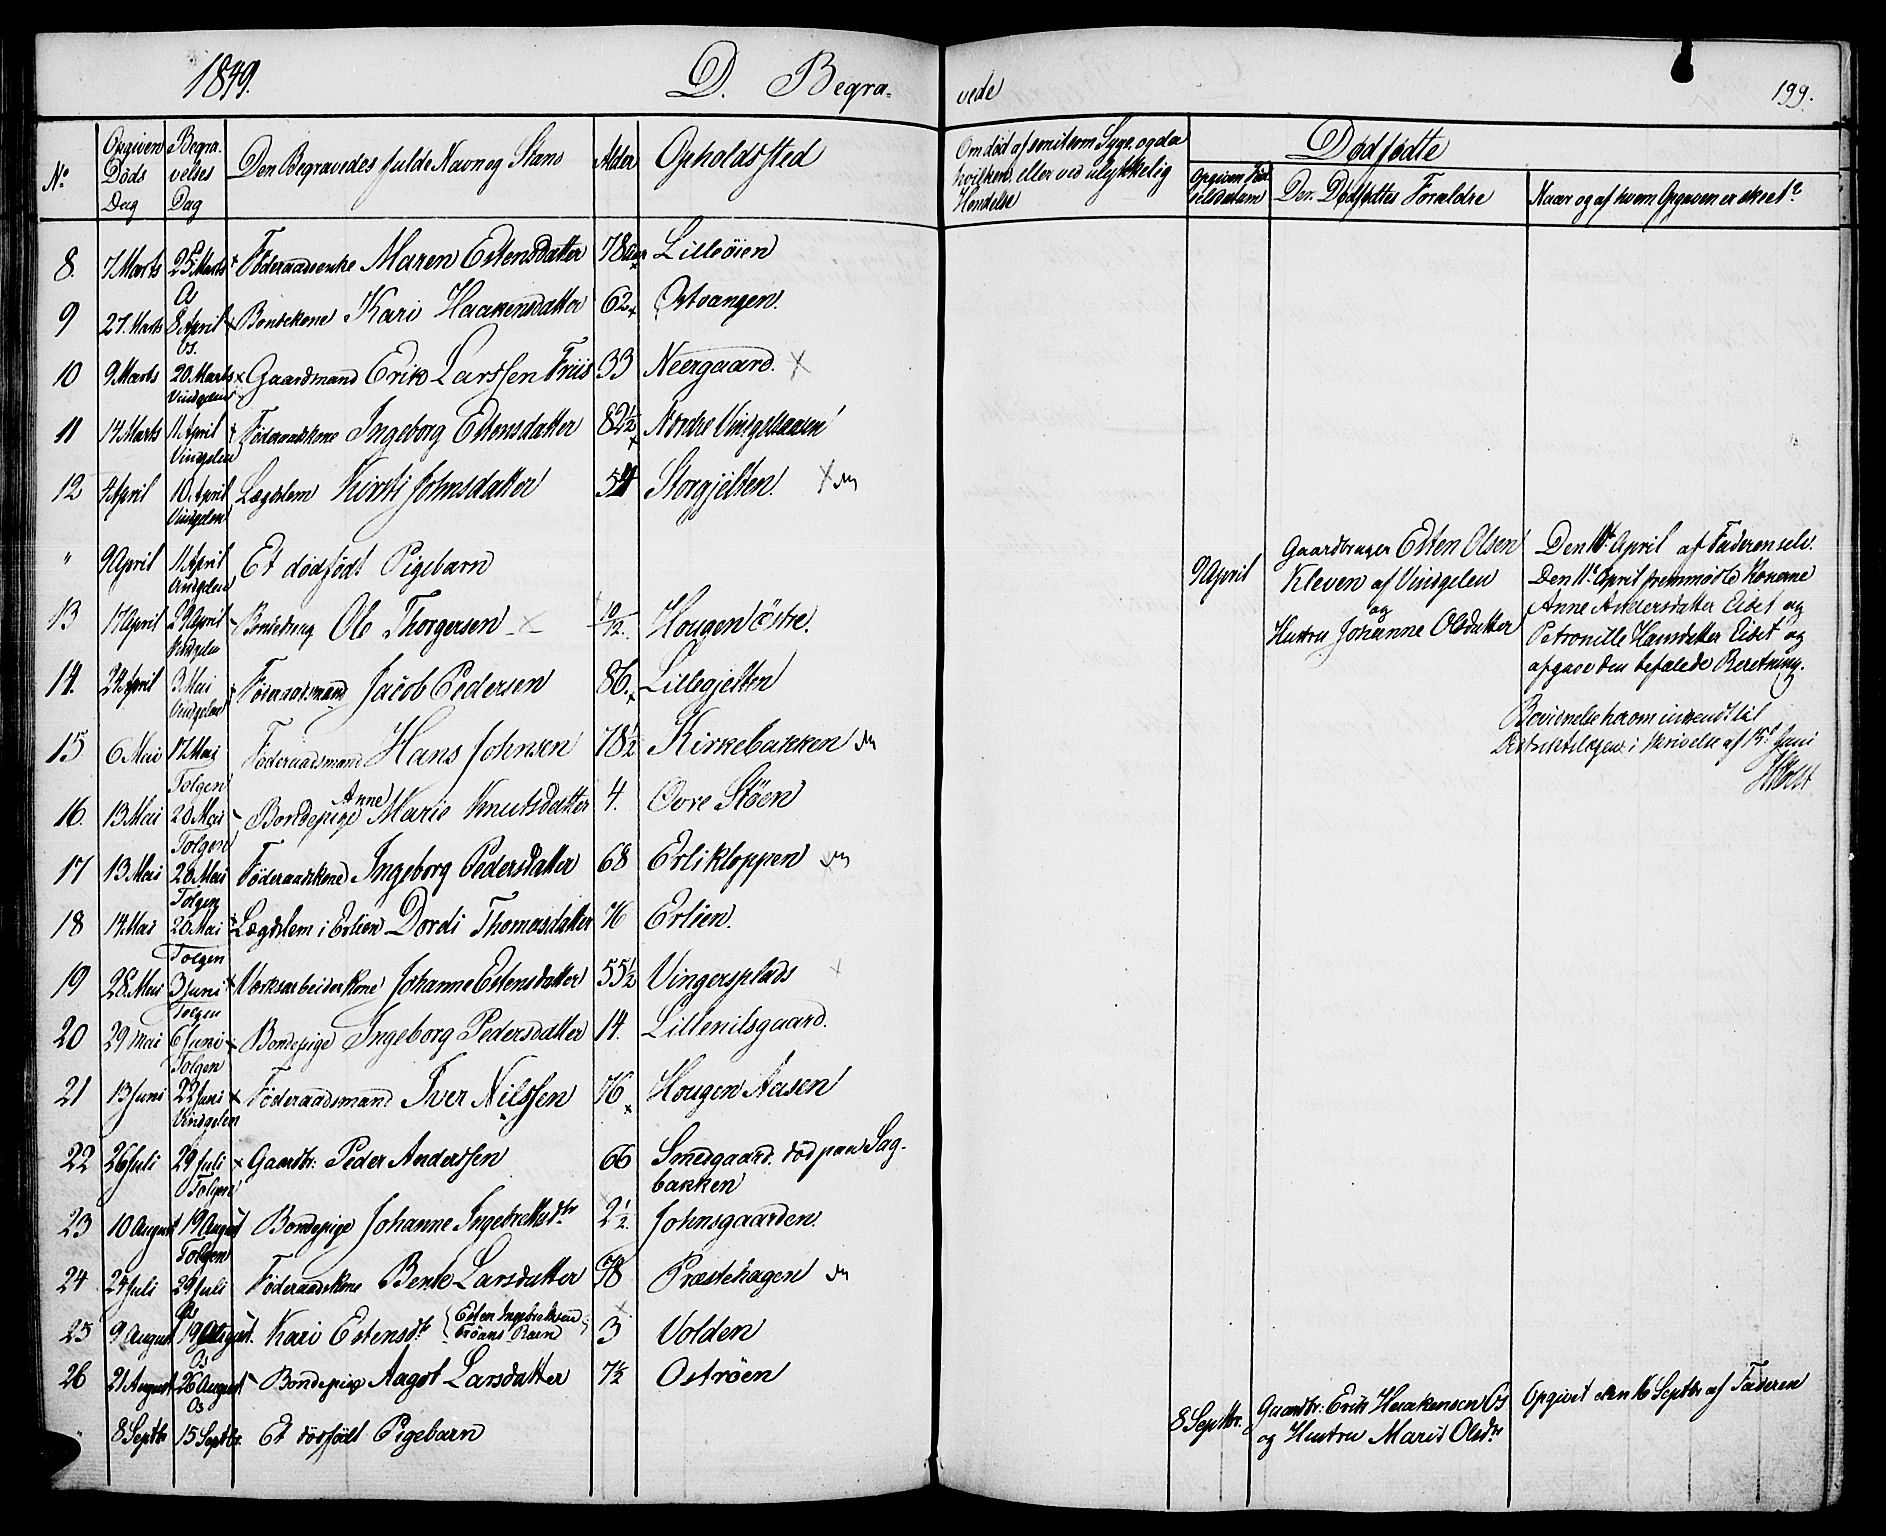 1849.
D. Begra-
vede
199.
No
Opgiven Døds Dag
Begravelses Dag
Den Begravedes fulde Navn og Stand
Alder
Opholdssted
Om død af smitsom Syge, og da hvilken, eller ved ulykkelig Hendelse
Dødfødte
Opgiven Fødselsdatum
De Dødfødtes Forældre
Naar og af hvem Opgaven er skeet?
8. 7 Marts 25 Marts Føderaadsenke Maren Estensdatter 78 Aar Lilleøien
9 27. Marts 8 April Os. Bondekone Kari Haakensdatter 62 Østvangen.
10 9 Marts 20 Marts Vindgelen Gaardmand Erik Larssen Friis 33 Neergaard.
11 14 Marts 11 April Vindgelen Føderaadskone Ingeborg Estensdatter 82½ Nordre Vindgelsaasen
12 4 April 10 April Vindgelen Lægdslem Kirsti Johnsdatter 54 Storgjelten.
" 9 April 11 April Vindgelen Et dødfødt Pigebarn
9 April
Gaardbruger Esten Olsen
Kleven af Vindgelen
og
Hustru Johanne Olsdatter
Den 11te April af Faderen selv.
Den 11te April fremmødte Konerne
Anne Andersdatter Eidet og
Petronille Hansdatter Eidet og
afgave den befalede Beretning.
13 17 April 29 April Vindgelen Bondedreng Ole Thorgersen 10/12. Hougen østre.
14. 24 April 3 Mai Vindgelen Føderaadsmand Jacob Pedersen 86. Lillegjelten
Bevidnelse herom indsendt til
Districtslægen i Skrivelse af 13de Juni
Holst
15 6 Mai 17 Mai Tolgen Føderaadsmand Hans Johnsen 78½ Kirkebakken
16. 13 Mai 20 Mai Tolgen Bondepige Anne Marie Knutsdatter 4. Øvre Støen
17 13 Mai 26 Mai Tolgen Føderaadskone Ingeborg Pedersdatter 68 Erlikloppen
18 14 Mai 26 Mai Tolgen Lægdslem i Erlien Dordi Thomasdatter 76 Erlien.
19 28. Mai 3 Juni Tolgen Værksarbeiderkone Johanne Estensdatter 55½ Vingersplads
20 29 Mai 6 Juni Tolgen Bondepige Ingeborg Pedersdatter 14. Lillenilsgaard.
21 13 Juni 22 Juni Vindgelen Føderaadsmand Iver Nilssen 76 Hougen Aasen
22 26 Juli 29 Juli Tolgen Gaardbr: Peder Anderssen 66 Smedgaard. død paa Sag-
bakken
23 10 August 19 August Tolgen Bondepige Johanne Ingebretsdtr 2½. Johnsgaarden.
24 24 Juli 29 Juli Os Føderaadskone Bente Larsdatter 78 Præstehagen
25 9 August 19 August. Os Kari Estensdtr (Esten Ingebretsen Trøans Barn) 3 Volden
26 21 August 26 August Os Bondepige Aagot Larsdatter 7½ Ostrøen
" 8 Septbr 15 Septbr. Et dødfødt Pigebarn
8 Septbr.
Gaardbr: Erik Haakensen Os
og Hustru Marit Olsdtr
Opgivet den 16 Septbr af Faderen